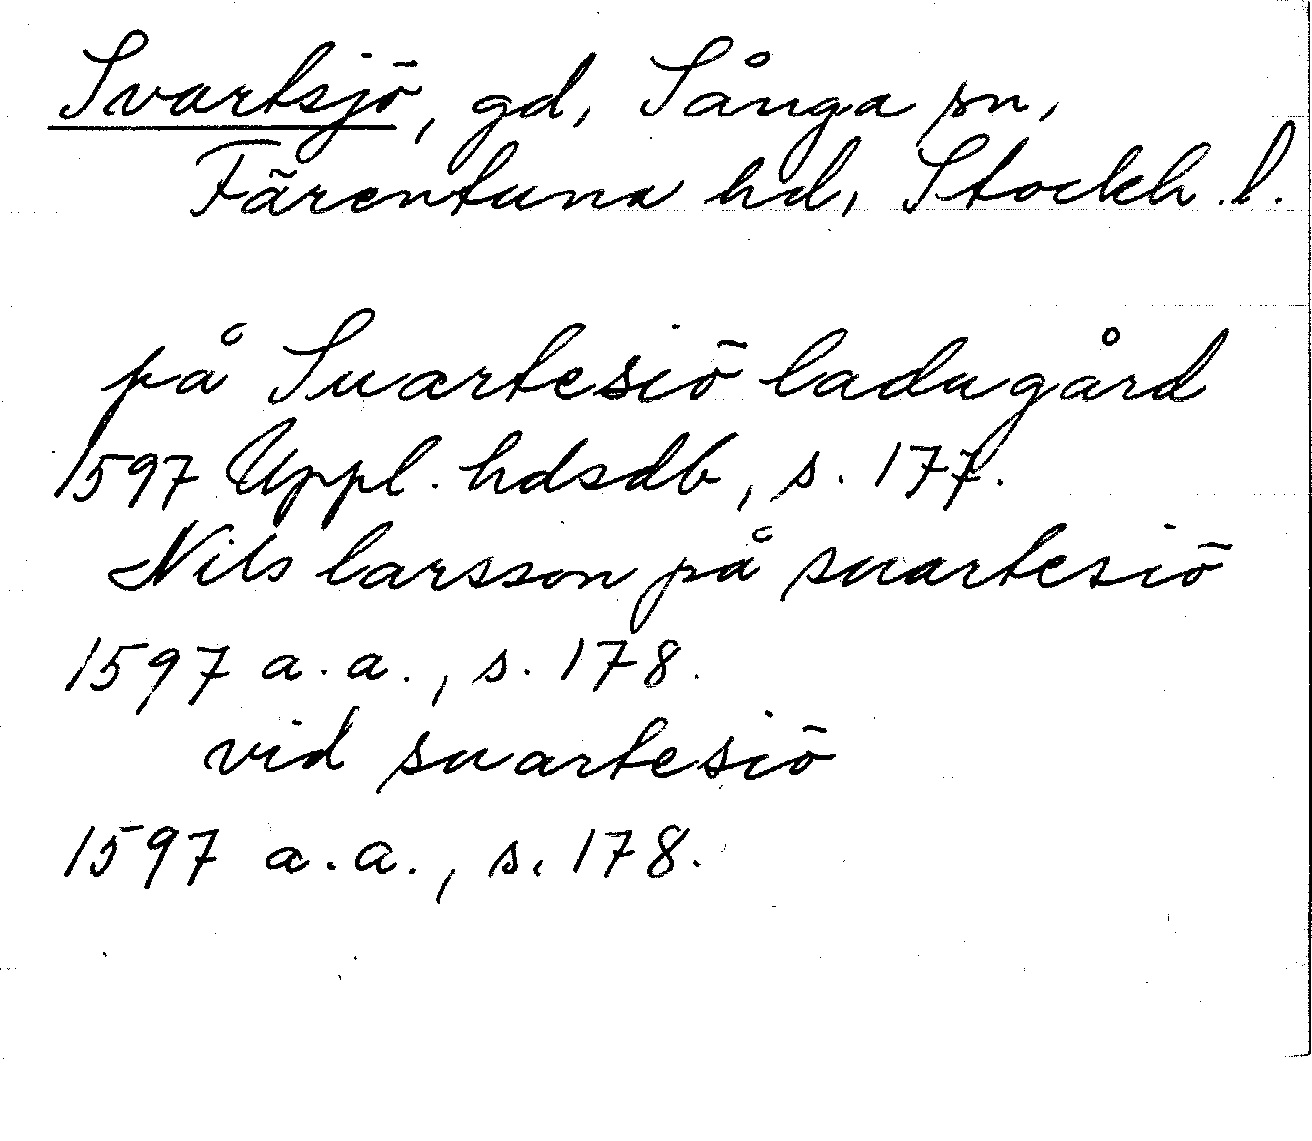 Svartsjö, gd, Sånga sn,
Färentuna hd, Stockh. l.
på Suartesiö ladugård
1597 Uppl. hdsdb, s. 177.
Nils larsson på suartesiö
1597 a.a., s. 178.
vid suartesiö
1597 a.a., s. 178.